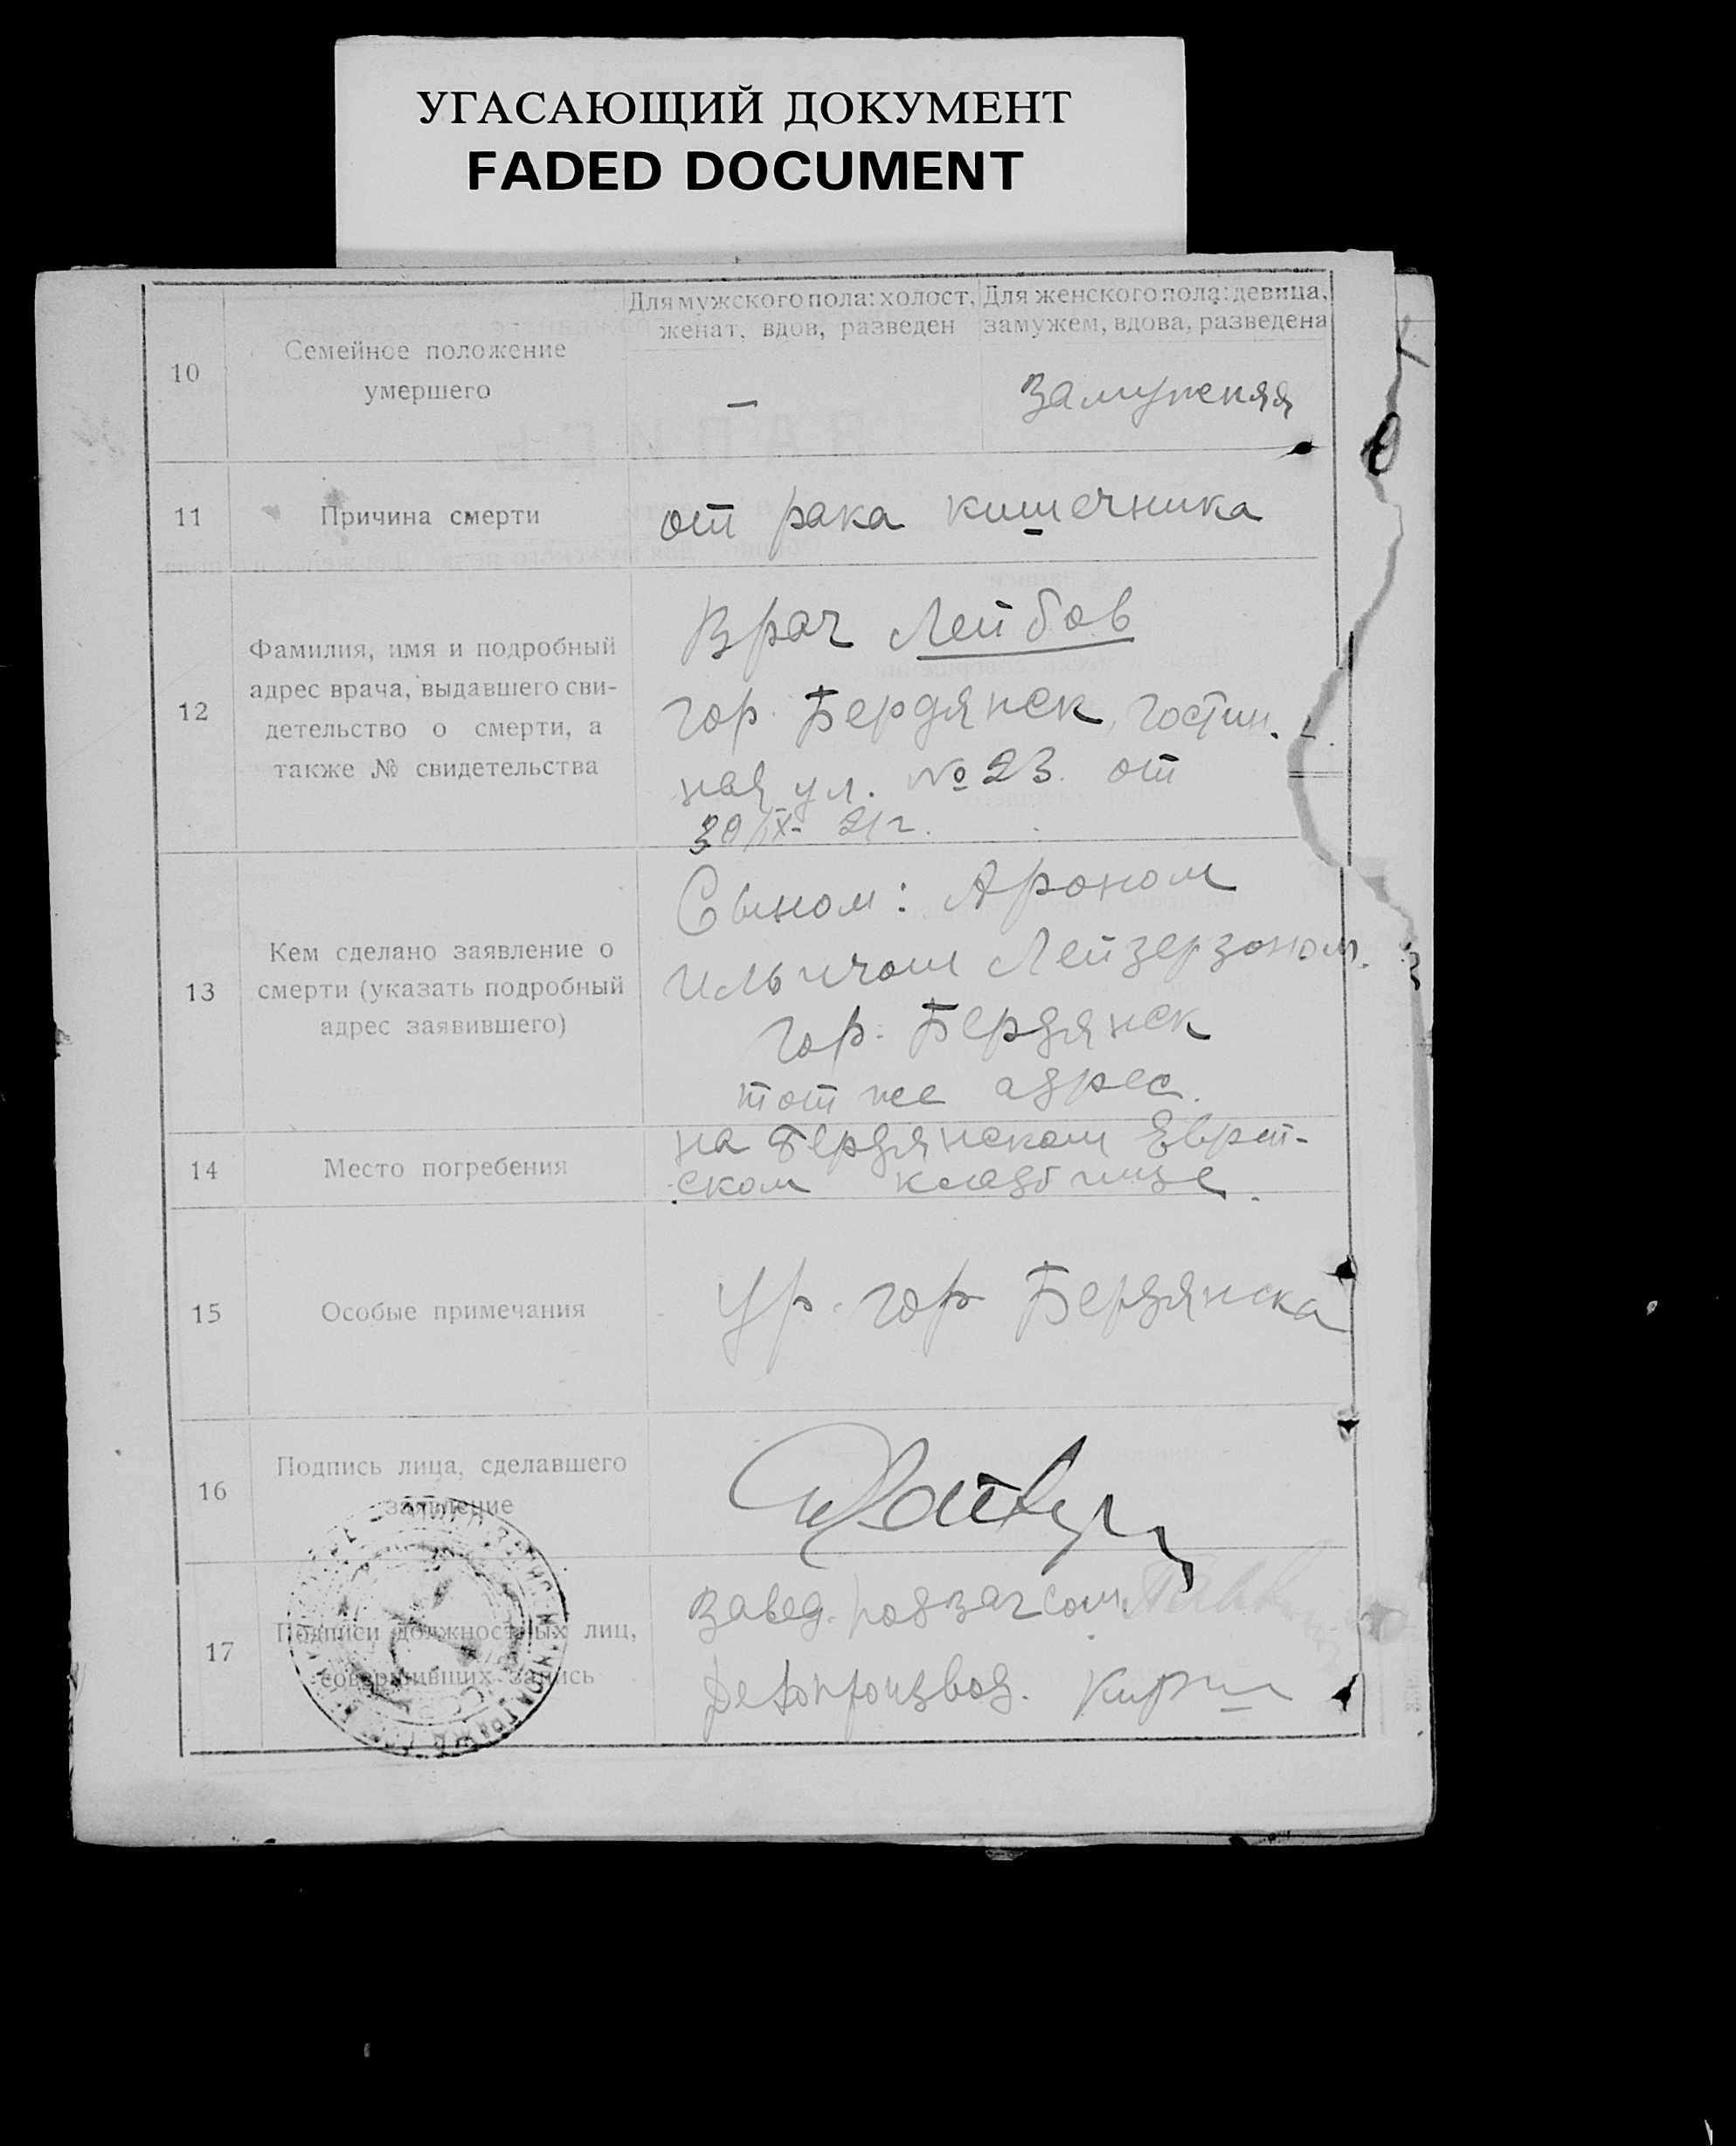 УГАСАЮЩИЙ ДОКУМЕНТ
FADED DOCUMENT
10
Семейное положение
умершего
Для мужского пола: холост,
женат, вдов, разведен
Для женского пола: девица,
замужем, вдова, разведена
—
Замужняя
11
Причина смерти
от рака кишечника
12
Фамилия, имя и подробный
адрес врача, выдавшего сви-
детельство о смерти, а
также № свидетельства
Врач Лейбов
гор. Бердянск, Гостин.
ная ул. № 23. от
30/IX- 21 г.
13
Кем сделано заявление о
смерти (указать подробный
адрес заявившего)
Сыном: Ароном
Ильичом Лейзерзоном.
гор. Бердянск
тот же адрес.
14
Место погребения
на Бердянском Еврей-
ском кладбище.
15
Особые примечания
Ур. гор Бердянска
16
Подпись лица, сделавшего
заявление
17
Подписи должностных лиц,
совершивших запись
Завед. подзагсом.
Делопроизвод. Кирш